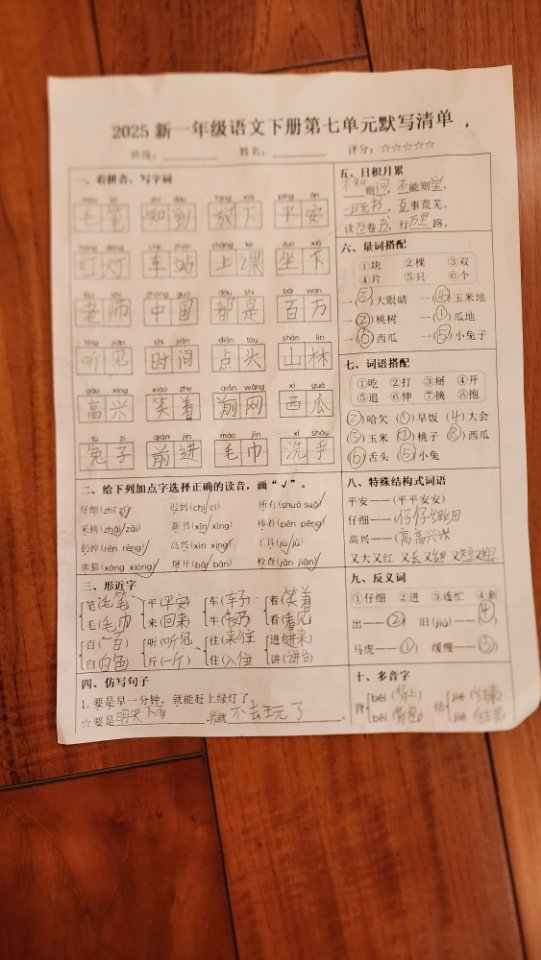 2025 新一年级语文下册第七单元默写清单
班级： 姓名： 评分：☆☆☆☆☆
一、看拼音，写字词
máo bǐ zhī dào fàng xià píng ān
毛笔 知到 放大 平安
hóng dēng chē zhàn shàng kè zuò xià
红灯 车站 上课 坐下
lǎo shī zhōng guó dōu shì bǎi wàn
老师 中国 都是 百万
tīng jiàn shí jiān diǎn tóu shān lín
听见 时间 点头 山林
gāo xìng xiào zhe qián wǎng xī guā
高兴 笑着 西瓜
tù zi qián jìn máo jīn xǐ shǒu
兔子 前进 毛巾 洗手
二、给下列加点字选择正确的读音，画“√”。
仔细(zhī zǐ) 迟到(chí cí) 所有(shuǒ suǒ)
采摘(zhāi zāi) 新书(xīn xīng) 捧着(pěn pěng)
扔掉(rēn rēng) 高兴(xìn xìng) 工具(jù jù)
熊猫(xóng xióng) 掰开(bāi bān) 检查(jǎn jiǎn)
三、形近字
笔(毛笔) 平(平安) 车(车子) 着(笑着)
毛(毛巾) 来(回来) 牛(牛奶) 看(看见)
百(一百) 听(听见) 往(来往) 进(进来)
白(白色) 斤(一斤) 住(入住) 讲(讲台)
四、仿写句子
1. 要是早一分钟，就能赶上绿灯了。
☆要是明天下雨，我就不去玩了。
五、日积月累
不知则问，不能则学。
一日无书，百事荒芜。
读万卷书，行万里路。
六、量词搭配
①块 ②棵 ③双
④片 ⑤只 ⑥个
一(③)大眼睛 一(④)玉米地
一(②)桃树 一(①)瓜地
一(⑥)西瓜 一(⑤)小兔子
七、词语搭配
①吃 ②打 ③掰 ④开
⑤追 ⑥伸 ⑦摘 ⑧抱
(②)哈欠 (①)早饭 (4)大会
(③)玉米 桃子 (⑧)西瓜
(⑥)舌头 (⑤)小兔
八、特殊结构式词语
平安——(平平安安)
仔细——(仔仔细细
高兴——(高高兴兴
又大又红 又长又细 又短又粗
九、反义词
①仔细 ②进 ③连忙 ④新
出——(②) 旧(jiù)——(④)
马虎——(①) 缓慢——(③)
十、多音字
背 bèi(背上) 结 jié
bēi(背包) jiē